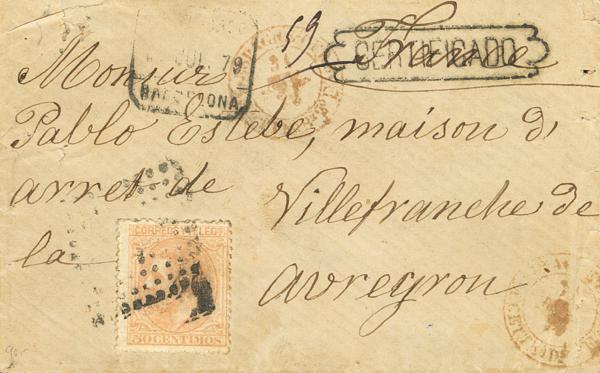 59 France
CERTIFICADO
JUL 79
BARCELONA
Monsiur
Pablo Estebe, maison d'
arret de Villefranche de
la avreyron
CORREOS Y TELEGFS
50 CENTIMOS